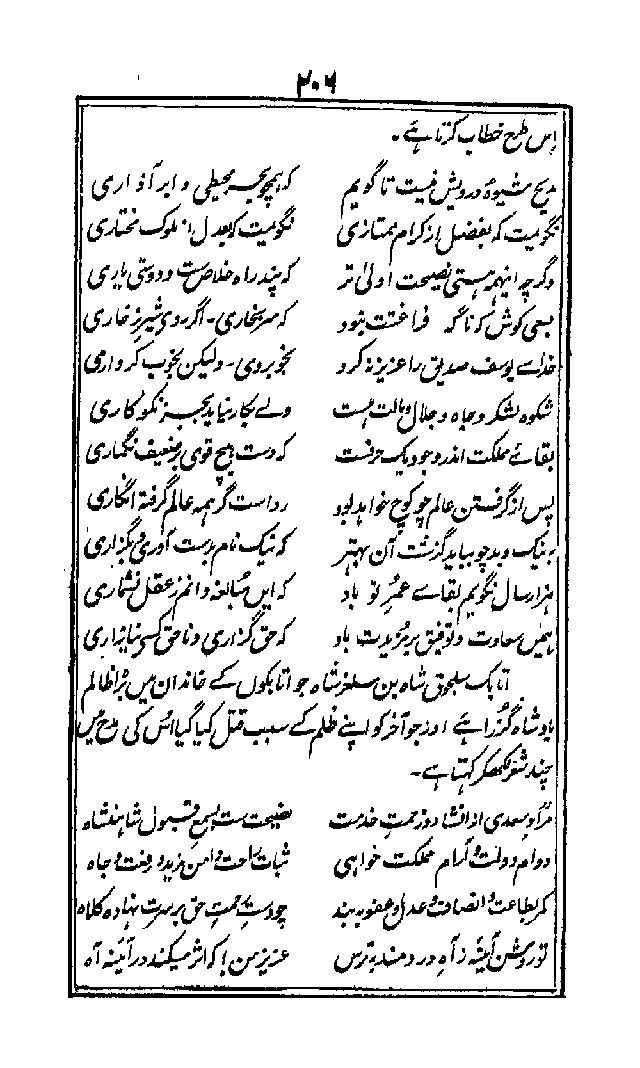 ۲۰۶
اِس طرح خطاب کرتا ہے۔
مدیح شیوۂ درویش نیست تا گویم کہ ہمچو بحر محیطی و ابر آذاری
نگویمت کہ بفضل از کرام ممتازی نگویمت کہ بعدل از ملوک مختاری
وگرچہ اینہمہ ہستی نصیحت اولیٰ تر کہ پند راہ خلاص ست و دوستی یاری
بسعی کوش کہ ناگہ فراغتت نبود کہ سر بخاری۔ اگر روی شیر نر خاری
خداے یوسف صدیق را عزیز نکرد بخوبروی۔ ولیکن بخوب کرداری
شکوہ لشکر و جاہ و جلال و مالت ہست ولے بکار نیاید بجز نکوکاری
بقائے مملکت اندر وجود یک حرفست کہ دست ہیچ قوی بر ضعیف نگماری
پس از گرفتن عالم چو کوچ خواہد بود رواست گر ہمہ عالم گرفتہ انگاری
بہ نیک و بد چو بباید گزشت آن بہتر کہ نیک نام بدست آوری و بگزاری
ہزار سال نگویم بقاے عمرِ تو باد کہ ایں مبالغہ دانم ز عقل نشماری
ہمیں سعادت و توفیق بر مزیدت باد کہ حق گزاری و ناحق کسے نیازاری
اتابک سلجوق شاہ بن سلغر شاہ جو اتابکوں کے خاندان میں بڑا ظالم
بادشاہ گزرا ہے اور جو آخر کو اپنے ظلم کے سبب قتل کیا گیا اُس کی مدح میں
چند شعر لکھکر کہتا ہے۔
مراد سعدی از انشاد زحمتِ خدمت نصیحت ست بسمعِ قبول شاہنشاہ
دوام دولت و آرام مملکت خواہی ثبات راحت و امن و مزید رفعت و جاہ
کمر بطاعت و انصاف و عدل و عفو ببند چو دستِ رحمتِ حق بر سرت نہادہ کلاہ
تو روشن آئینۂ ز آہِ دردمند بترس عزیزِ من! کہ اثر میکند در آئینہ آہ